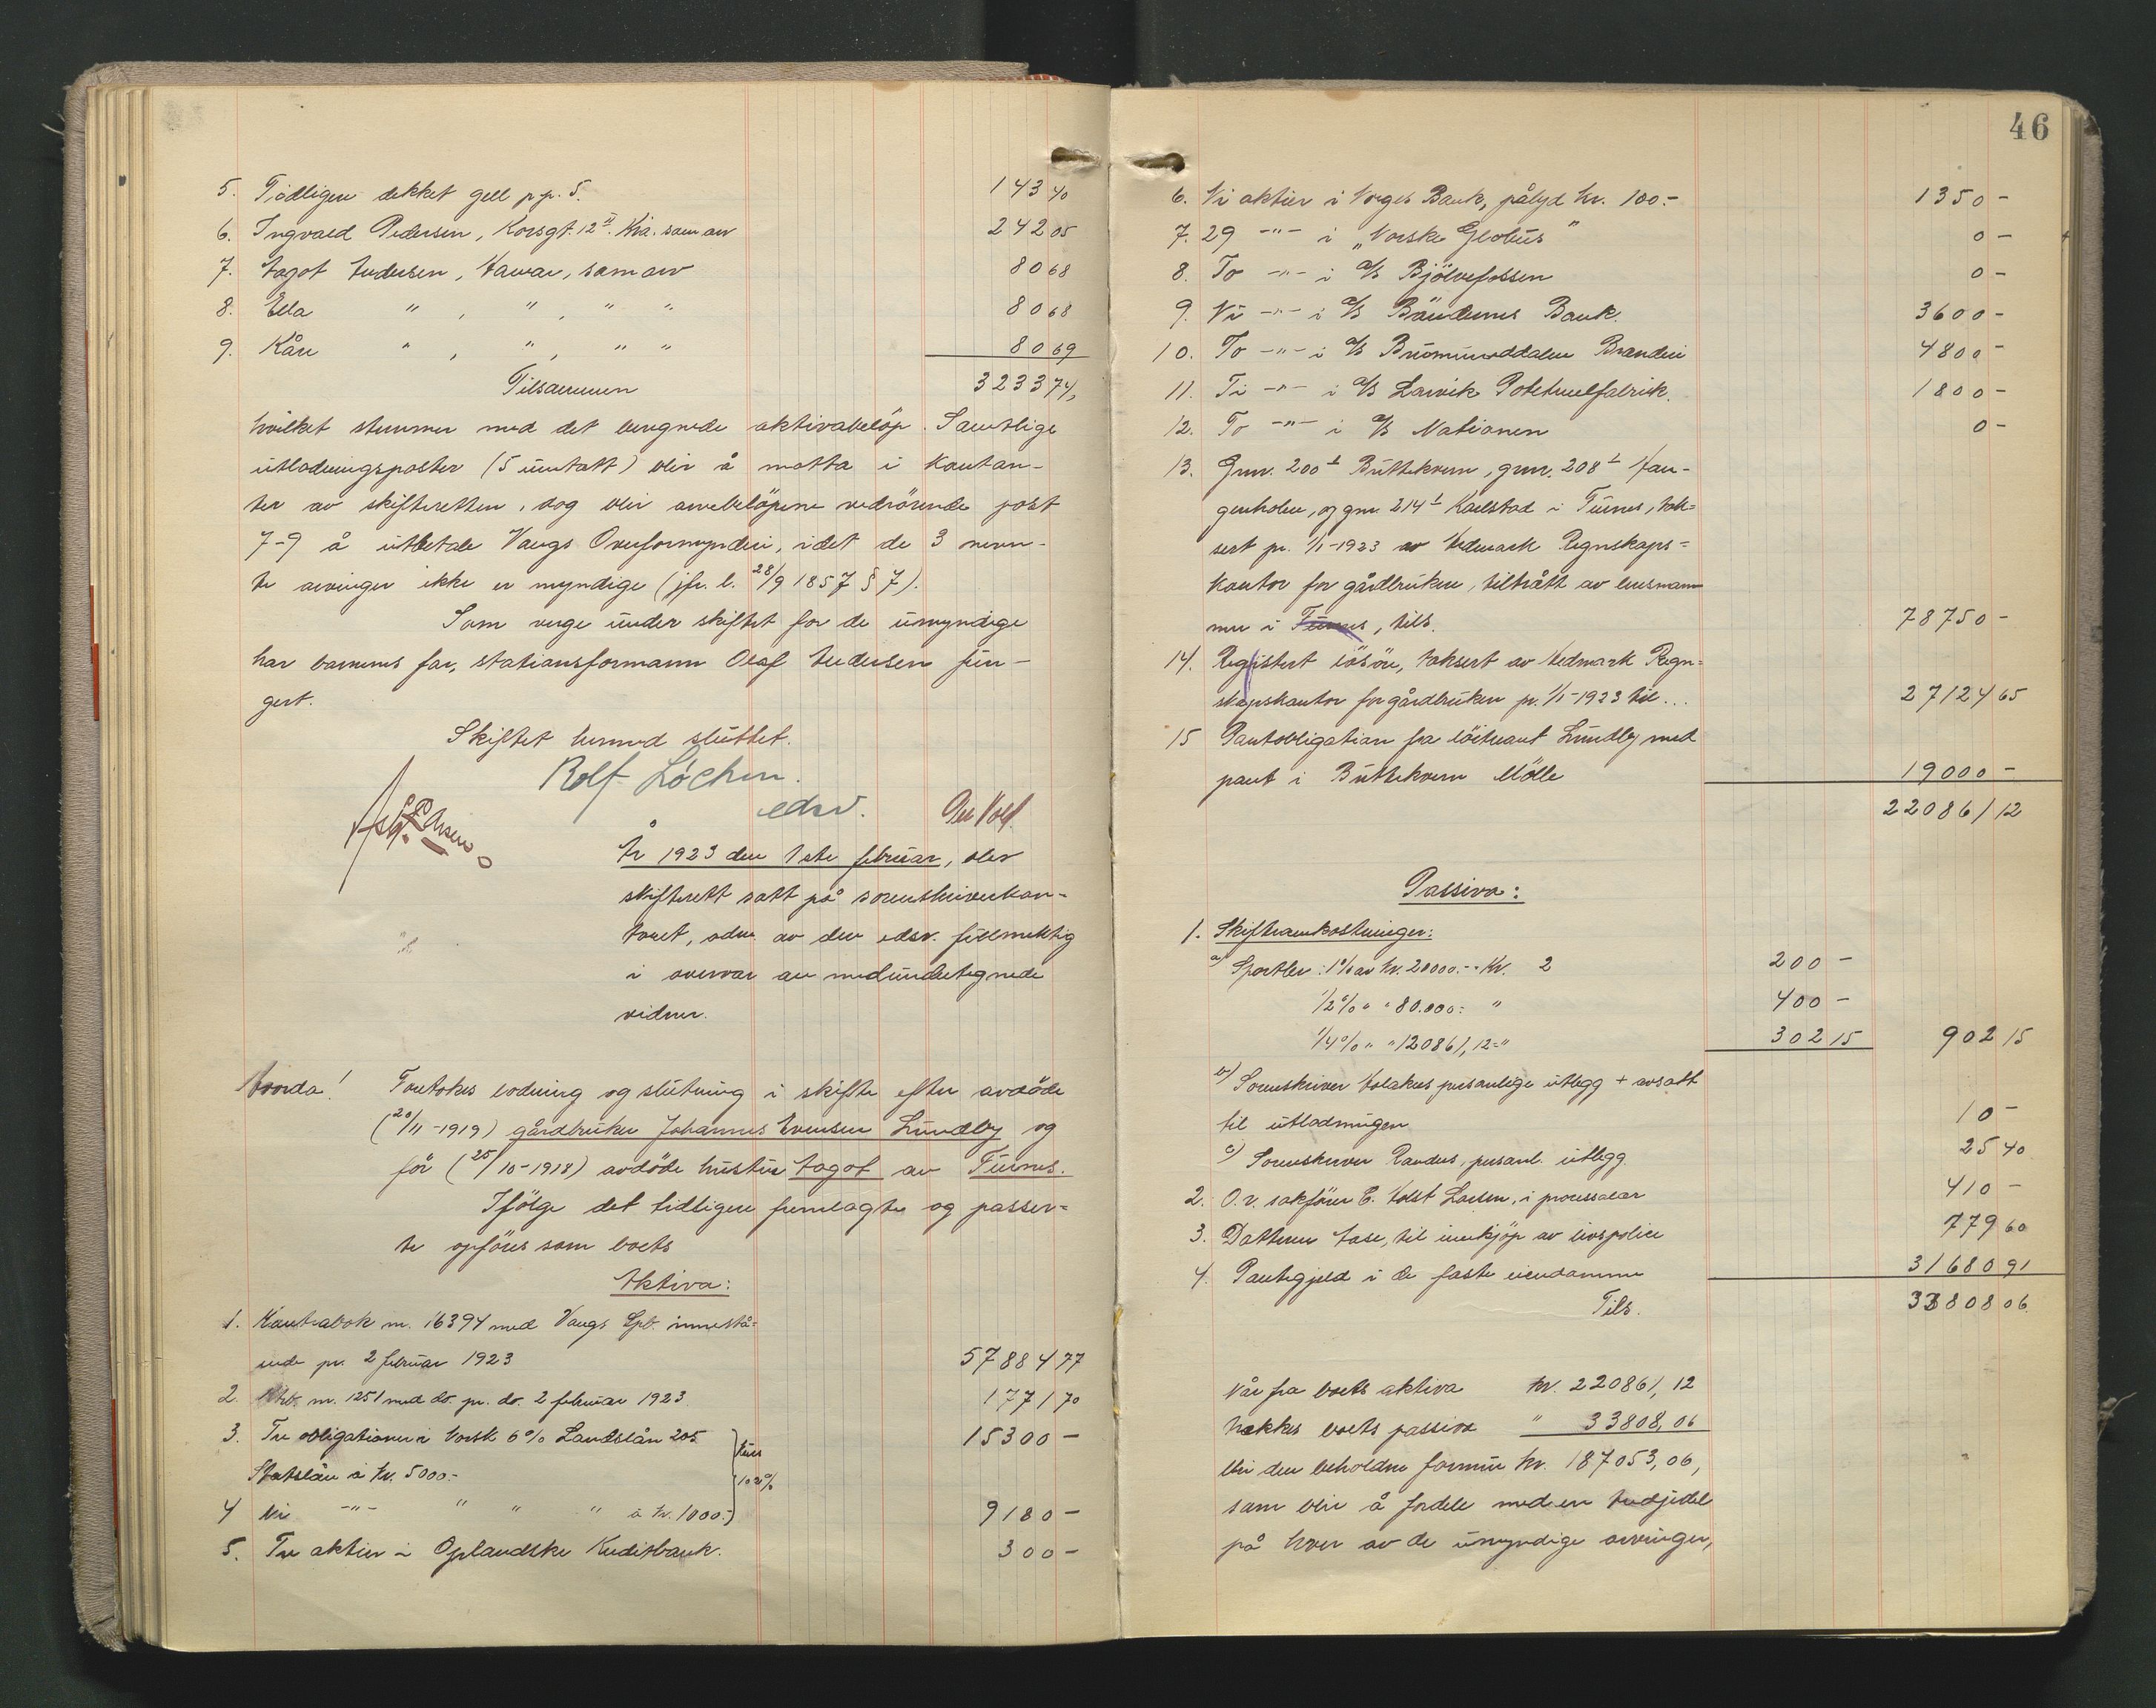 5. Tidligere dekket gell pp. 5. 143 40
6. Ingvald Pedersen, Korsgt. 12 II. Kra. som arv 242 05
7. Aagot Andersen, Hamar, som arv 80 68
8. Ella " , " , " " 80 68
9. Kåre " , " , " " 80 69
Tilsammen 3233 74,
hvilket stemmer med det beregnede aktivabelöp. Samtlige
utlodningsposter (5 undtatt) blir å motta i kontan-
ter av skifteretten, dog blir arvebelöpene vedrörende post
7-9 å utbetale Vangs Overformynderi, idet de 3 nevn-
te arvinger ikke er myndige (jfr. l. 28/9 1857 § 7).
Som verge under skiftet for de umyndige
har barnenes far, stationsformann Olaf Andersen fun-
gert.
Skiftet hermed sluttet.
Rolf Löchen.
edsv.
År 1923 den 1ste februar, blev
skifterett satt på sorenskriverkon-
toret, adm. av den edsv. fullmektig
i overvær av medundertegnede
vidner.
Foretokes lodning og slutning i skifte efter avdöde
(20/11-1919) gårdbruker Johannes Evensen Lundby og
för (25/10-1918) avdöde hustru Aagot av Furnes.
Ifölge det tidligere fremlagte og passer-
te opföres som boets
Aktiva:
1. Kontrabok nr. 16394 med Vangs Spb. innestå-
ende pr. 2 februar 1923 57884 77
2. nr. 1251 med do. pr. do. 2 februar 1923. 1771 70
3. Tre obligationer i Norsk 6% Landslån 205
Statslån à kr. 5000.- kurs 102% 15300 -
4 Ni -"- " " " à kr. 1000.-) 9180 -
5. Tre aktier i Oplandske Kreditbank. 300 -
46
6. Ni aktier i Norges Bank, pålyd kr. 100.- 1350 -
7. 29 -"- i "Norske Globus" 0 -
8. To -"- i A/S Bjölvefossen 0 -
9. Ni -"- i A/S Böndernes Bank. 3600 -
10. To -"- i A/S Brumunddalen Brenderi 4800 -
11. Ti -"- i A/S Larvik Potetmelfabrik. 1800 -
12. To -"- i A/S Nationen 0 -
13. Gnr. 200 1 Buttekvern, gnr. 208 1 Hau-
genholen, og gnr. 214 1 Karlstad i Furnes, tak-
sert pr. 1/1-1923 av Hedmark Regnskaps-
kontor for gårdbrukere, tiltrått av lensmann
en i Furnes, tils. 78750 -
14. Registrert lösöre, taksert av Hedmark Regn-
skapskontor for gårdbrukere pr. 1/1-1923 til ... 27124 65
15 Pantobligation fra löitnant Lundby med
pant i Buttekvern Mölle 19000 -
220861 12
Passiva:
1. Skifteomkostninger:
a) Sportler: 1% av kr. 20000.- Kr. 2 200 -
1/2% " " 80.000.- " 400 -
1/4% " " 120861,12 = " 302 15 902 15
b) Sorenskriver personlige utlegg + avsatt
til utlodningen 10 -
c) Sorenskriver Randers, personl. utlegg. 25 40
2. O.r. sakförer C. Holst Larsen, i processalær 410 -
3. Datteren Aase, til innkjöp av livspolice 779 60
4. Pantegjeld i de faste eiendomme 31680 91
Tils. 33808 06.
Når fra boets aktiva kr. 220861,12
trekkes boets passiva " 33808,06
blir den beholdne formue kr. 187053,06,
som blir å fordele med en tredjedel
på hver av de umyndige arvinger,